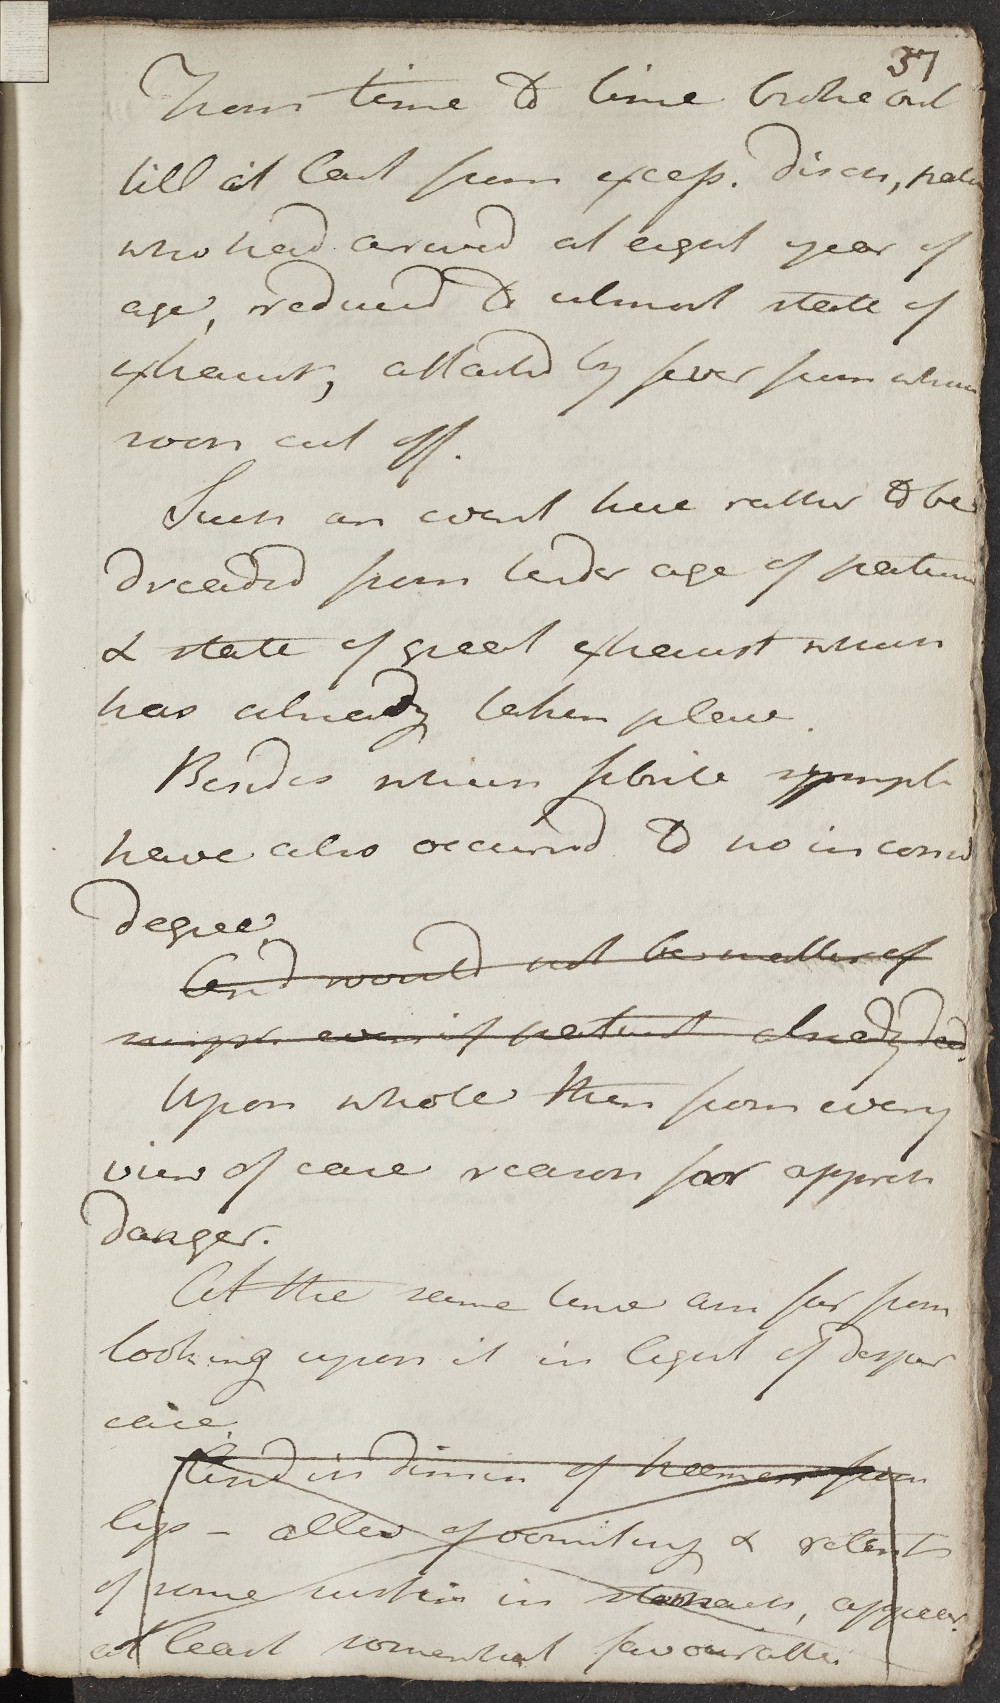 37
From time to time broke out
till at last from excess. disch, patie
who had arrived at eight year of
age, reduced to almost state of
exhaust, attacked by fever from whic
soon cut off.
Such an event here rather to be
dreaded from tender age of patient
& state of great exhaust which
has already taken place.
Besides which febrile sympt
have also occurred to no incons
degree.
And would not be matter of
surpr even if patient already dead.
Upon whole then from every
view of case reason for appreh
danger.
At the same time am far from
looking upon it in light of desper
case.
And in dimin of haemorr from
lips - allev of vomiting & retent
of some in stomach, appear
at least somewhat favourable